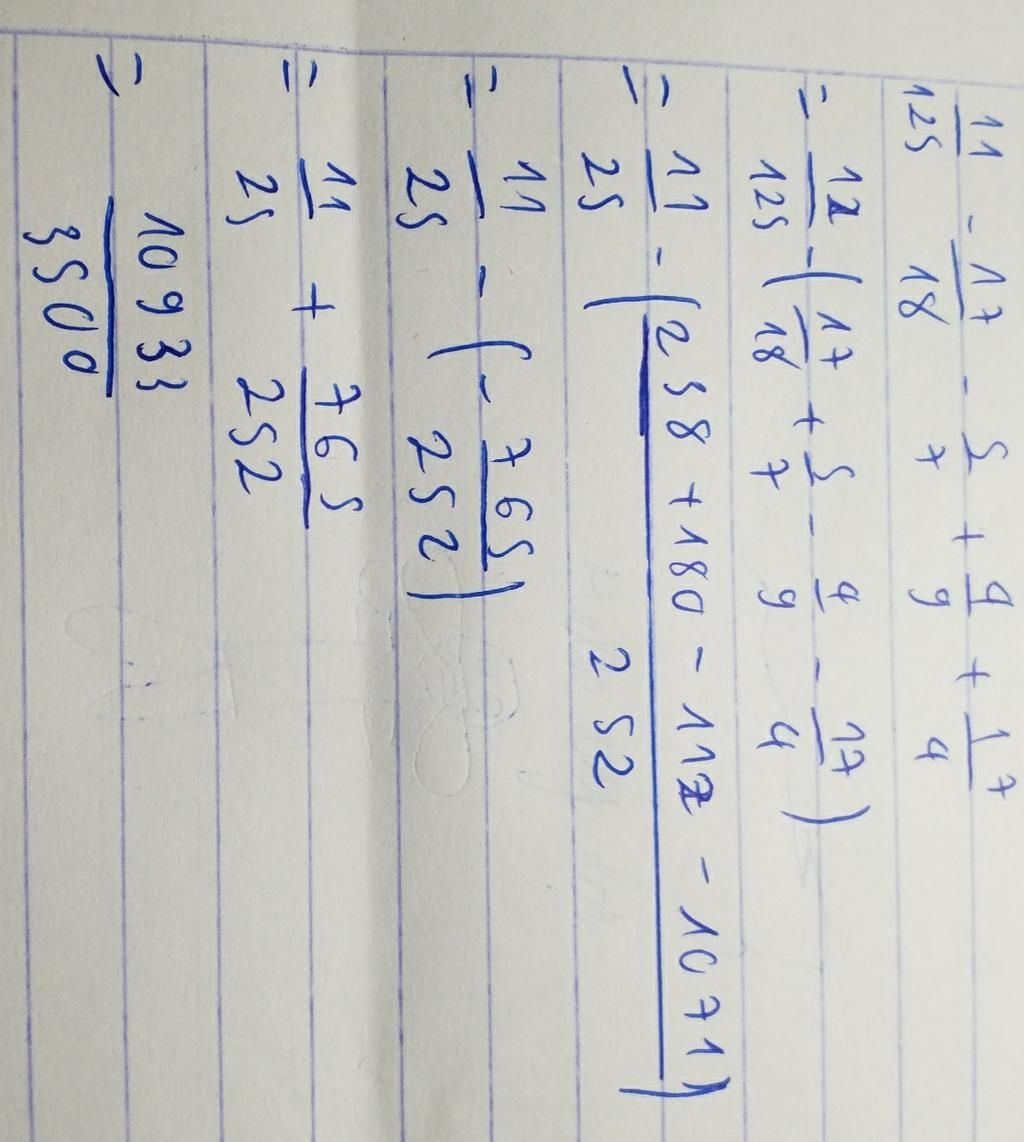 11/125 - 17/18 - 5/7 + 4/9 + 17/4
= 11/125 - (17/18 + 5/7 - 4/9 - 17/4)
= 11/25 - (238 + 180 - 112 - 1071 / 252)
= 11/25 - (- 765/252)
= 11/25 + 765/252
= 10933/3500